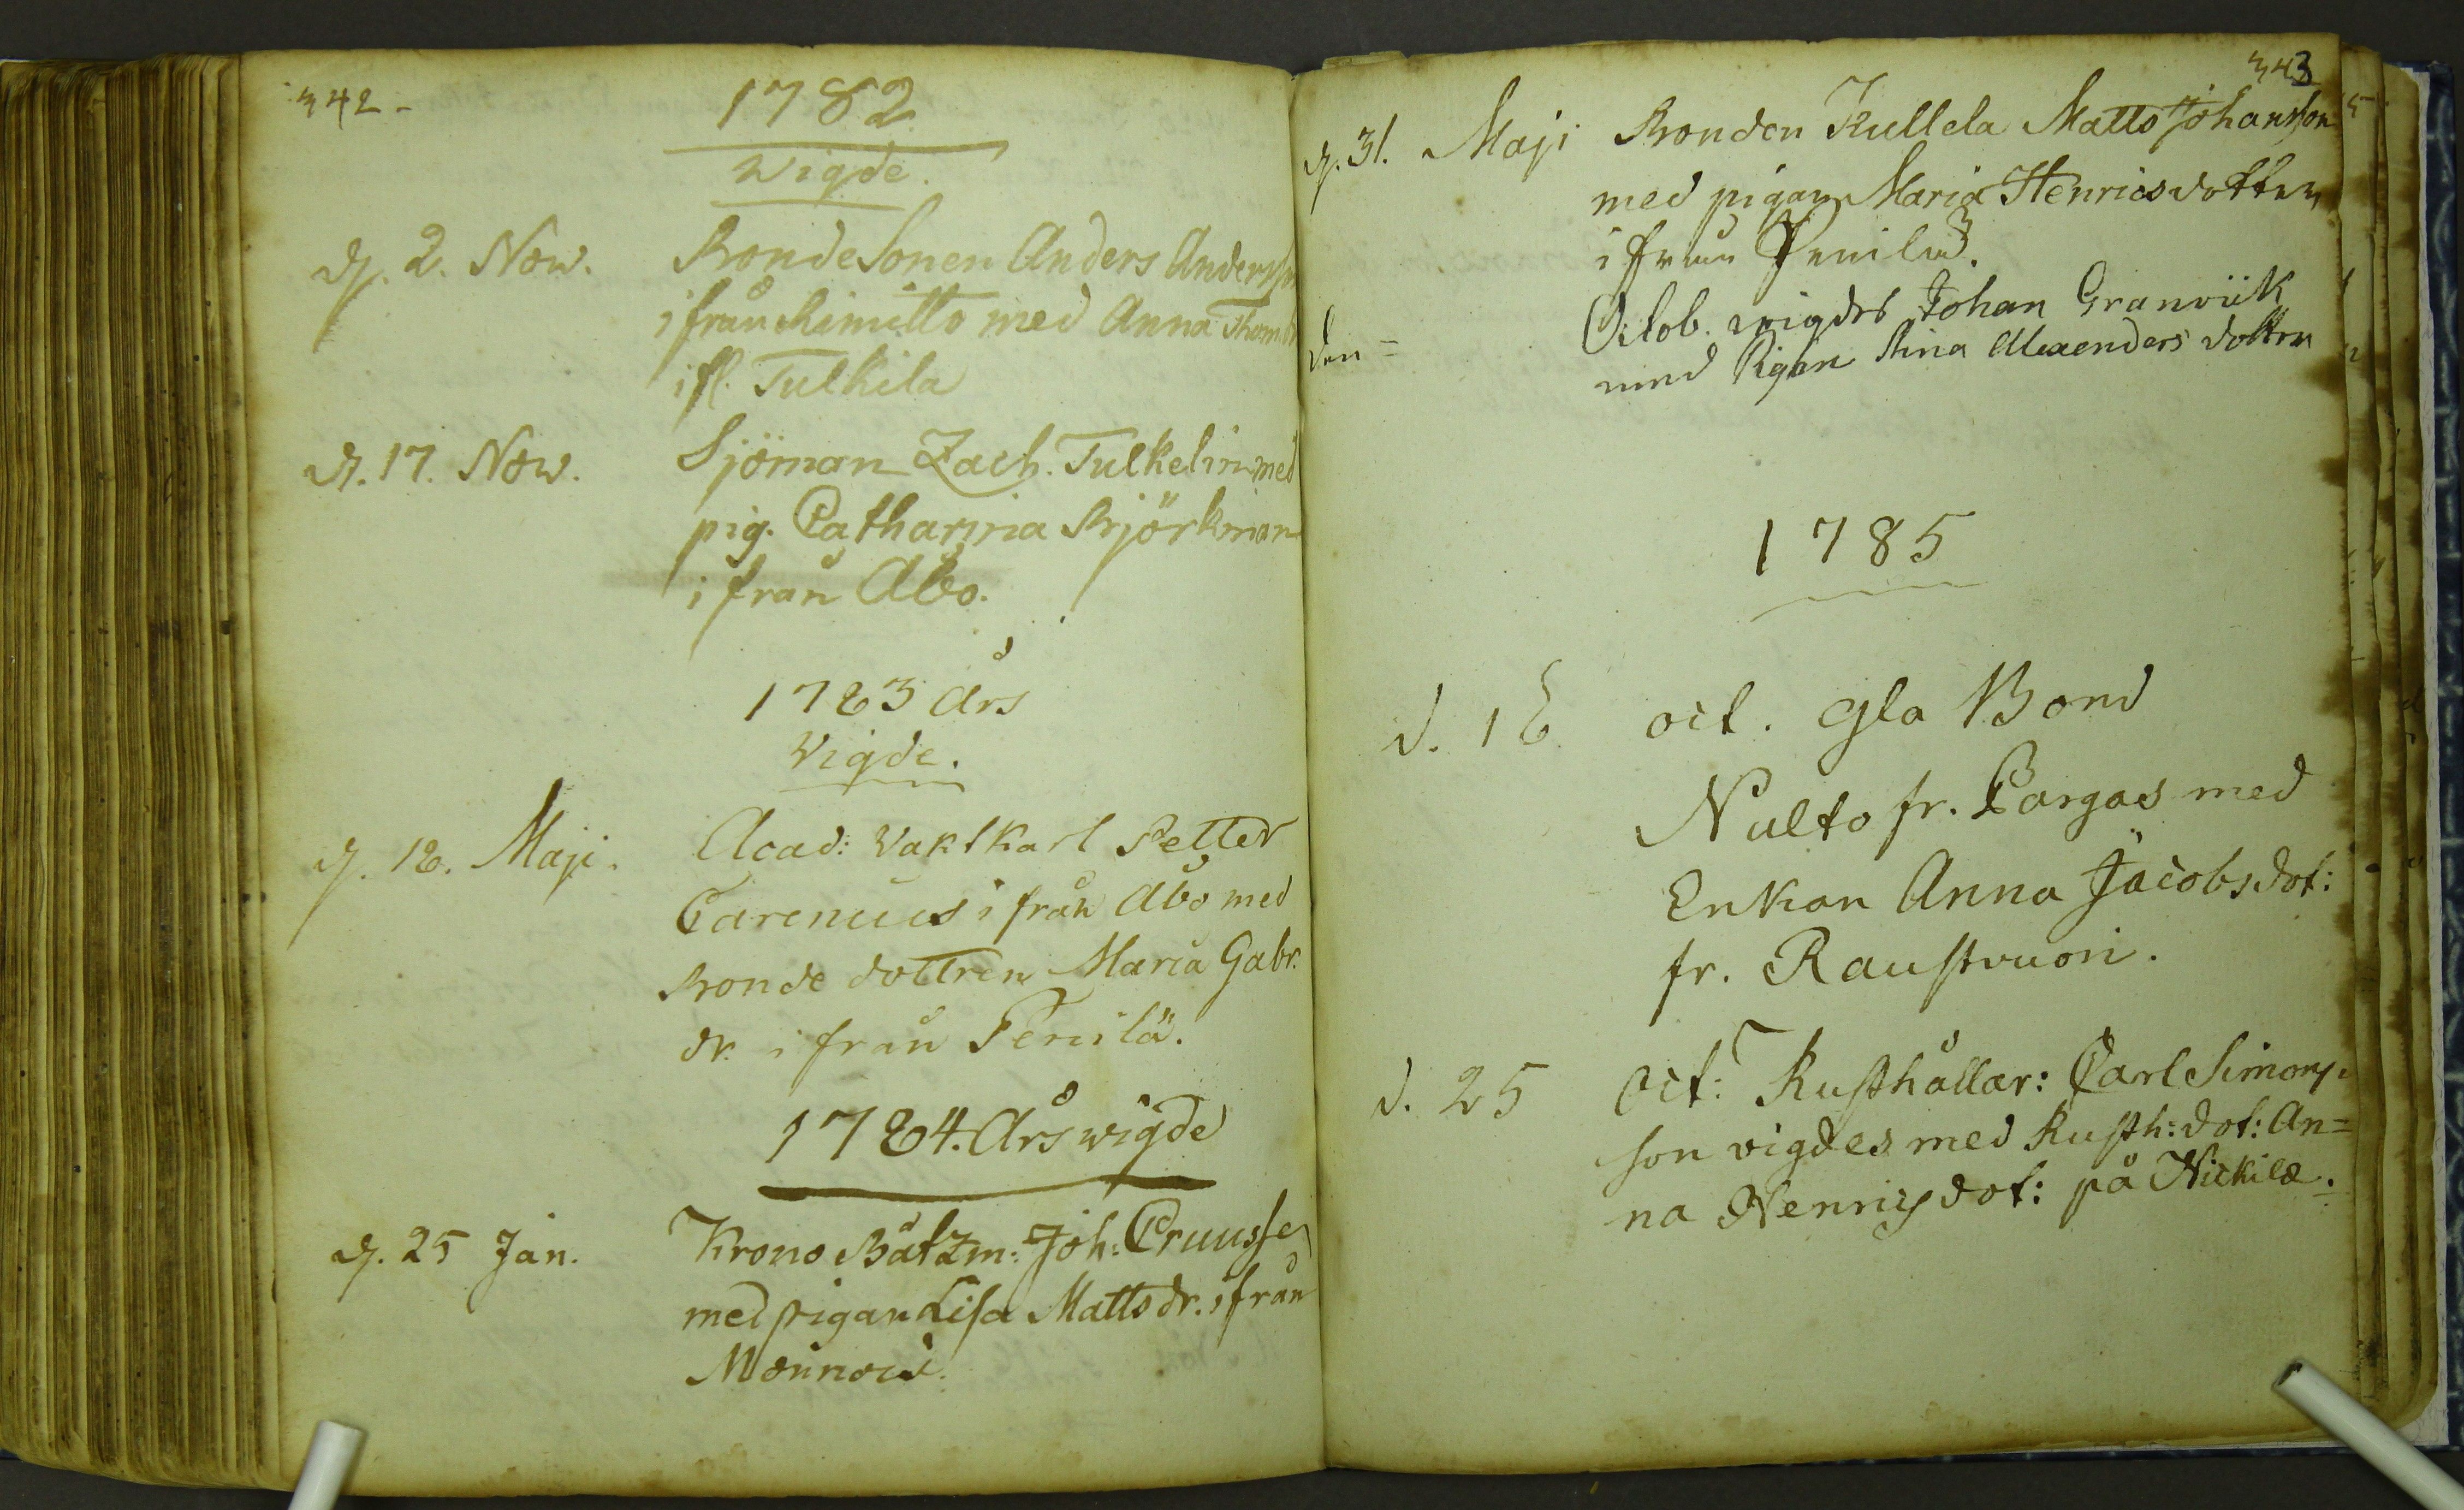 342
1782
Wigde.
d. 2. Now. BondeSonen Anders Andersson
ifrån Kimitto med Anna Thom
ifl. Tulkila
d. 17. Now. Sjöman Zach. Tulkelin med
pig. Catharina Björkman
ifrån Åbo.
1783 Års
Vigde.
d. 18. Maji. Acad: Vaktkarl Petter
Carenius ifrån Åbo med
Bonde dottren Maria Gabr.
dr. ifrån Penilä.
1784. Års wigde
d. 25 Jan. Krono Båtzm: Joh: Cruusse
med pigan Lisa Matts dr. ifrån
343
d. 31. Maji Bonden Kullela Matts Johansson
med pigan Maria Henricsdotter
ifrån Penilä.
den = Octob. wigdes Johan Granviik
med Pigan Stina Alexanders dotter
1785
d. 18 oct. gla Bond
Nulto fr. Pargas med
Enkan Anna Jacobsdot:
fr. Raustvuori.
d. 25 Oct: Rusthållar: Carl Simons-
son vigdes med Rusth: dot: An=
na Henrics dot: på Nickilæ.